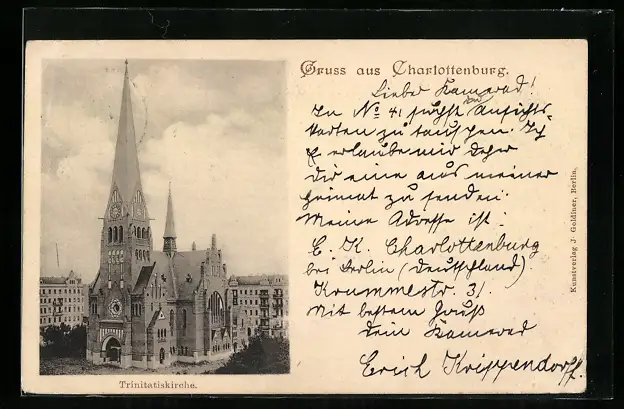 Gruss aus Charlottenburg.
Lieber Kamerad!
In No 41 suchst du Ansichts-
karten zu tauschen. Ich
erlaube mir daher
Dir eine aus meiner
Heimat zu senden.
Meine Adresse ist:
E. K. Charlottenburg
bei Berlin (Deutschland)
Krummestr. 31.
Mit bestem Gruß
dein Kamerad
Erich Krippendorff.
Trinitatiskirche.
Kunstverlag J. Goldiner, Berlin.